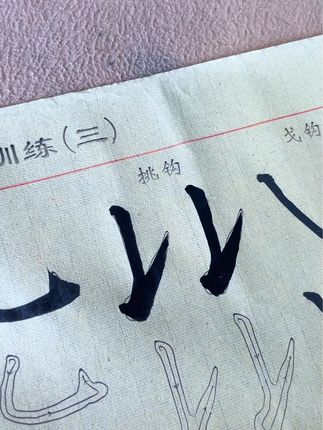 训练(三)
挑钩
戈钩